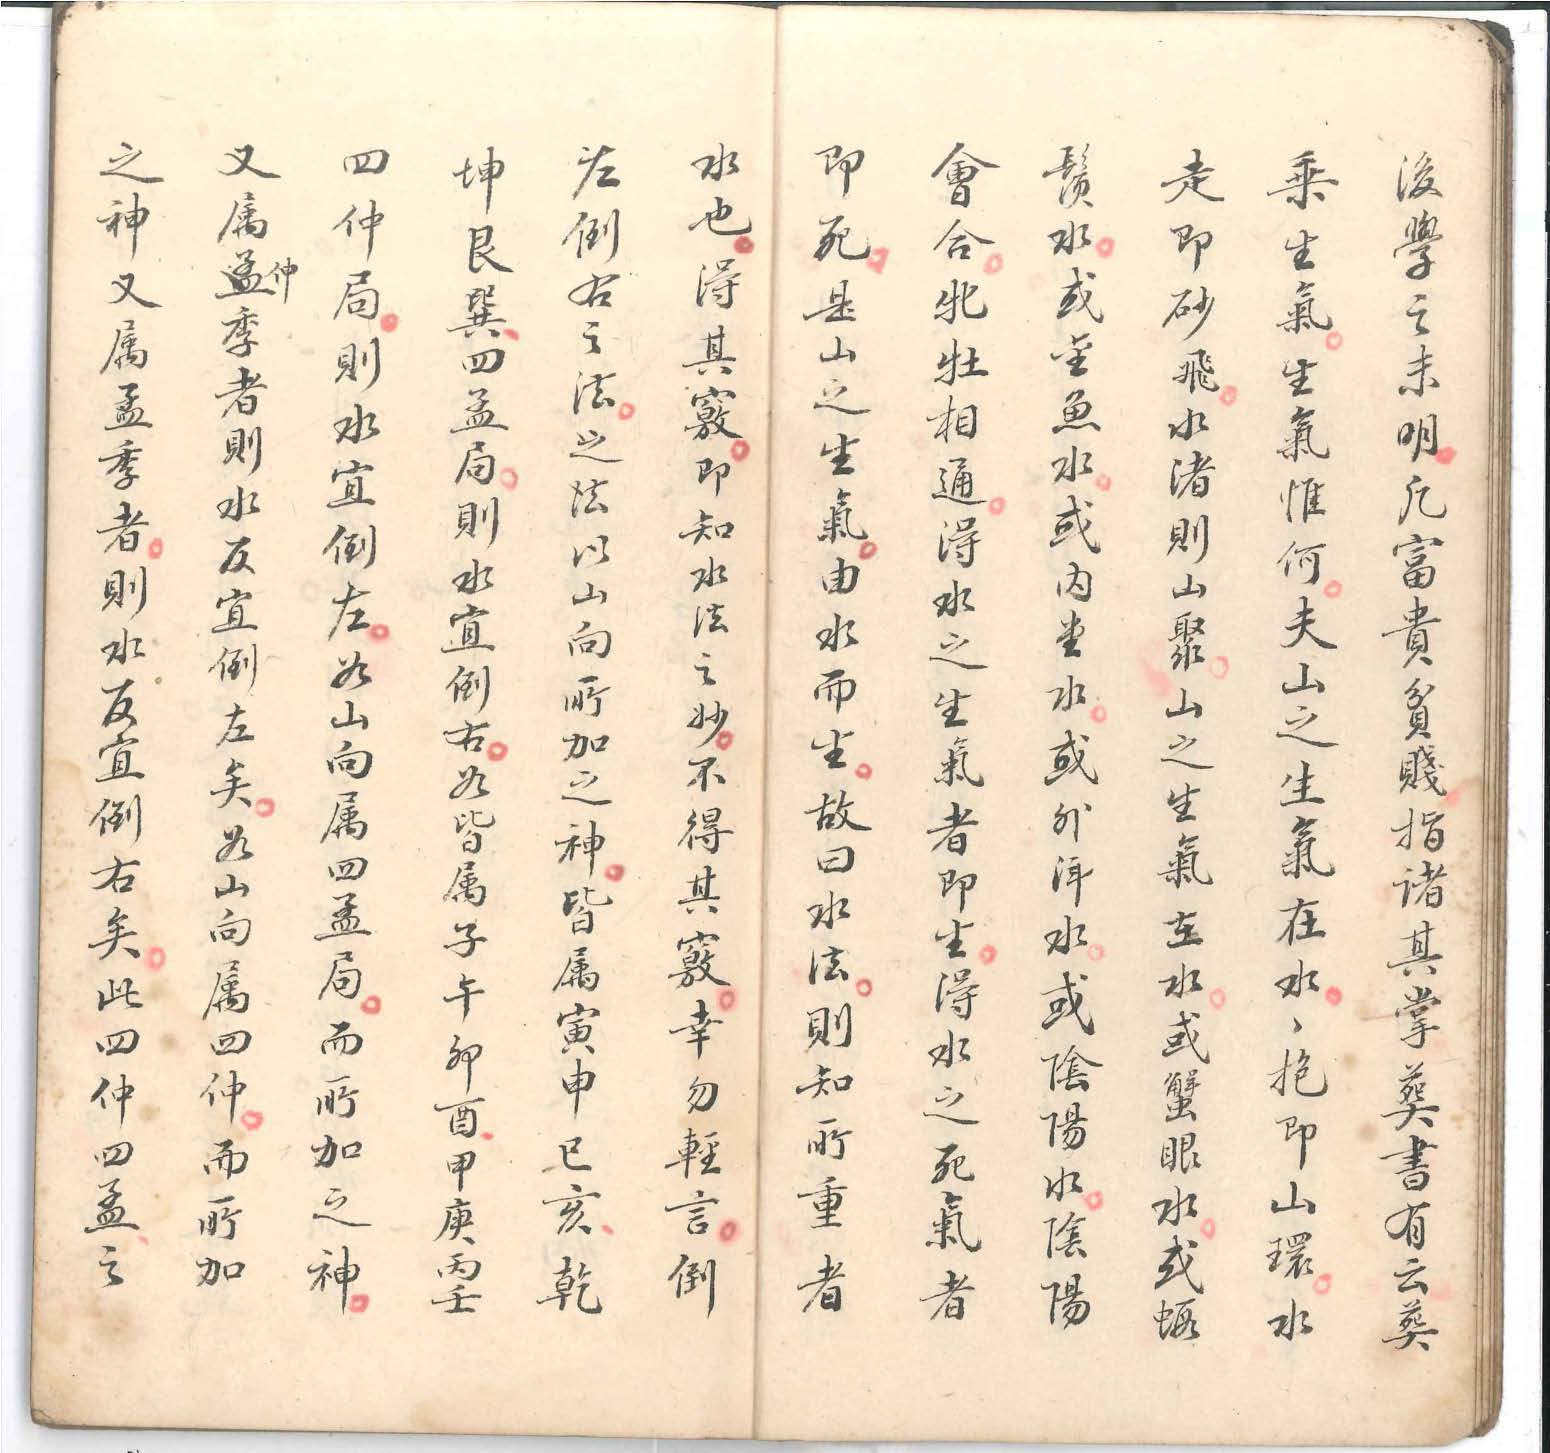 後學之未明凡富貴貧賤指諸其掌葬書有云葬
乘生氣生氣惟何夫山之生氣在水丶抱即山環水
走即砂飛水渚則山聚山之生氣在水或蟹眼水或蝦
鬚水或金魚水或内堂水或外洋水或陰陽水陰陽
會合牝牡相通得水之生氣者即生得水之死氣者
即死是山之生氣由水而生故曰水法則知所重者
水也得其竅即知水法之妙不得其竅幸勿輕言倒
左倒右之法之法以山向所加之神皆属寅申巳亥乾
坤艮巽四孟局則水宜倒右若皆属子午卯酉甲庚丙壬
四仲局則水宜倒左若山向属四孟局而所加之神
又属孟仲季者則水反宜倒左矣若山向属四仲而所加
之神又属孟季者則水反宜倒右矣此四仲四孟之